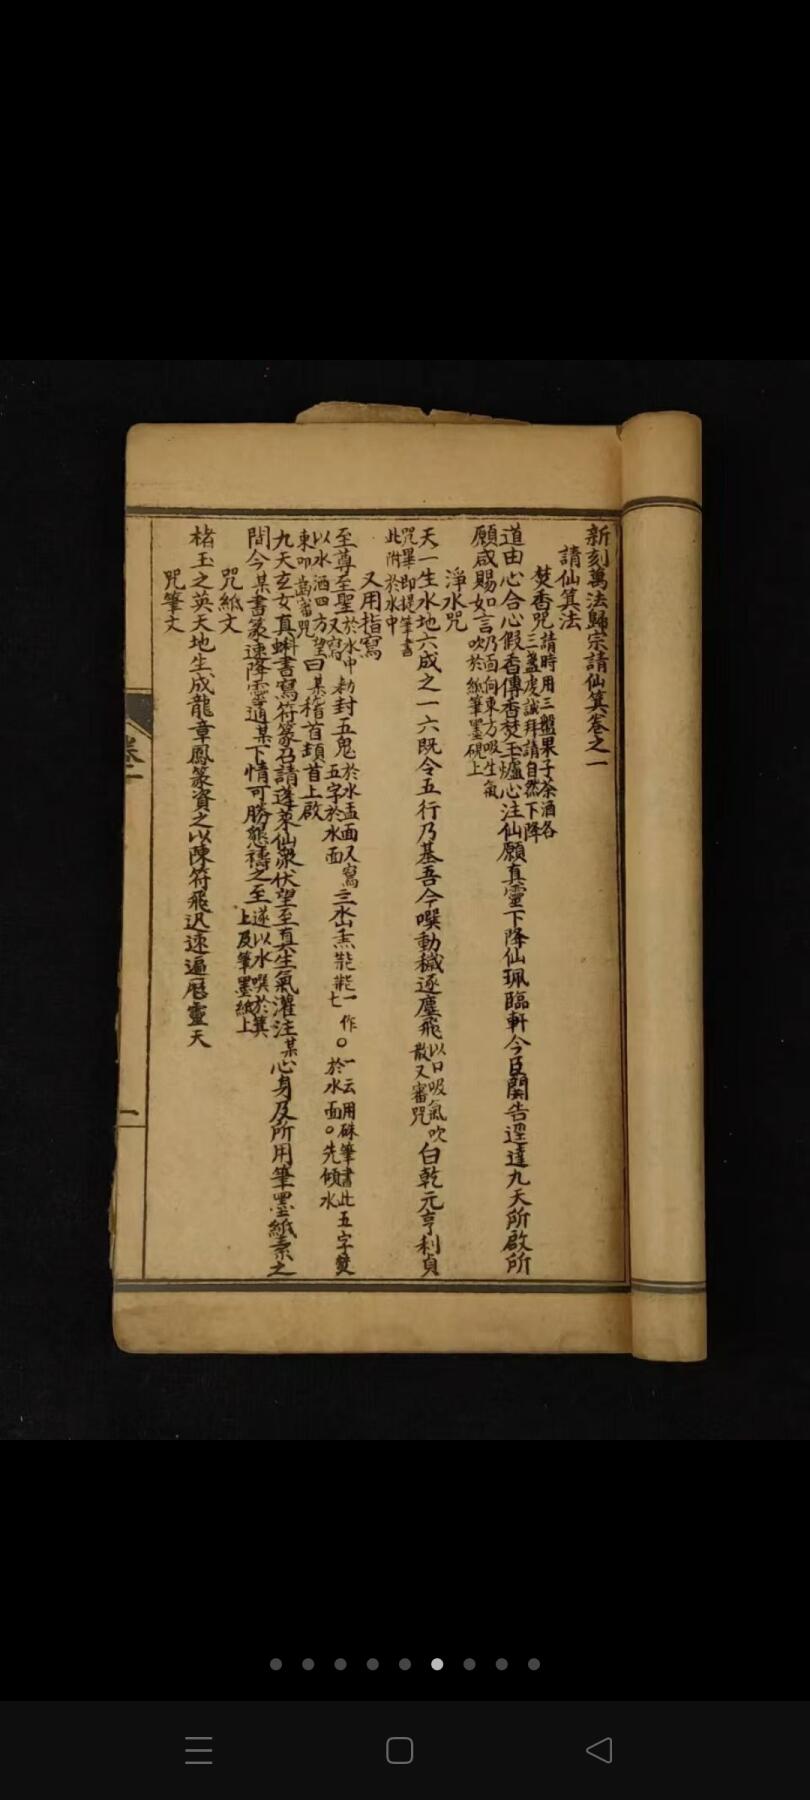 新刻萬法歸宗請仙箕卷之一
請仙箕法
焚香咒請時用三盤果子茶酒各
三盞虔誠拜請自然下降
道由心合心假香傳香焚玉爐心注仙願真靈下降仙珮臨軒今臣關告逕達九天所啟所
願咸賜如言乃面向東方吸生氣
吹於紙筆墨硯上
淨水咒
天一生水地六成之一六既令五行乃基吾今噀動穢逐塵飛以口吸氣吹
散又審咒曰乾元亨利貞
咒畢即提筆書
此附於水中
又用指寫
至尊至聖於水中
又寫勅封五鬼於水盂面又寫
五字於水面
一作
七
一云用硃筆書此五字焚
於水面先傾水
以水洒四方望
東叩萬審咒曰某稽首頡首上啟
九天玄女真蝌書寫符篆召請蓬萊仙眾伏望至真生氣灌注某心身及所用筆墨紙素之
間今某書篆速降靈通某下情可勝懇禱之至遂以水噀於箕
上及筆墨紙上
咒紙文
楮玉之英天地生成龍章鳳篆資之以陳符飛迅速遍歷靈天
咒筆文
一